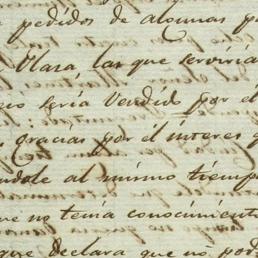 pedidos de algunas
Plaza, las que serviria
seria Vendido por el
gracias por el interes
ndole al mismo tiemp
no tenia conocimient
que declara que no pod